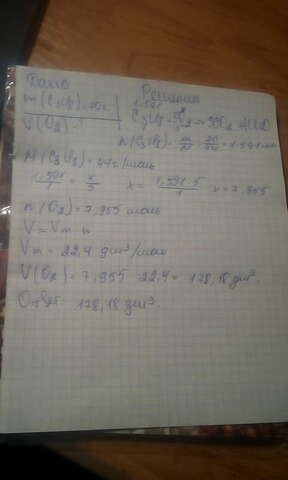 Дано
Решение
m(C3H8)=70г
1,591 x
C3H8+5O2=3CO2+4H2O
V(O2)-?
n(C3H8)=m/M=70/44=1,591моль
M(C3H8)=44г/моль
1,591/1=x/5 x=1,591·5/1 x=7,955
n(O2)=7,955 моль
V=Vm·n
Vm=22,4 дм³/моль
V(O2)=7,955·22,4=178,18дм³.
Ответ: 178,18 дм³.